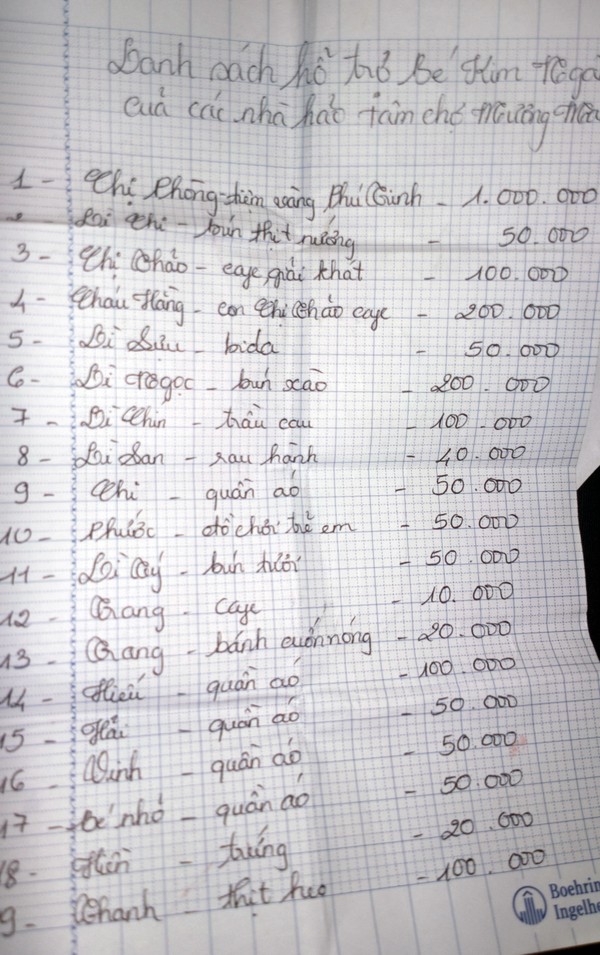 Danh sách hỗ trợ bé Kim Ngâ
của các nhà hảo tâm chợ Mường
1 - Chị Phòng - tiệm vàng Phú Vinh - 1.000.000
2 - Dì Chi - bún thịt nướng - 50.000
3 - Chị Thảo - cafe, giải khát - 100.000
4 - Cháu Hằng - con chị Thảo cafe - 200.000
5 - Dì Sửu - bida - 50.000
6 - Dì Ngọc - bún xào - 200.000
7 - Dì Chín - trầu cau - 100.000
8 - Dì San - rau hành - 40.000
9 - Chi - quần áo - 50.000
10 - Phước - đồ chơi trẻ em - 50.000
11 - Dì Tý - bún tươi - 50.000
12 - Trang - cafe - 10.000
13 - Trang - bánh cuốn nóng - 20.000
14 - Hiếu - quần áo - 100.000
15 - Hải - quần áo - 50.000
16 - Vinh - quần áo - 50.000
17 - bé nhỏ - quần áo - 50.000
18 - Hiền - trứng - 20.000
9 - Thanh - thịt heo - 100.000
Boehrin
Ingelhe